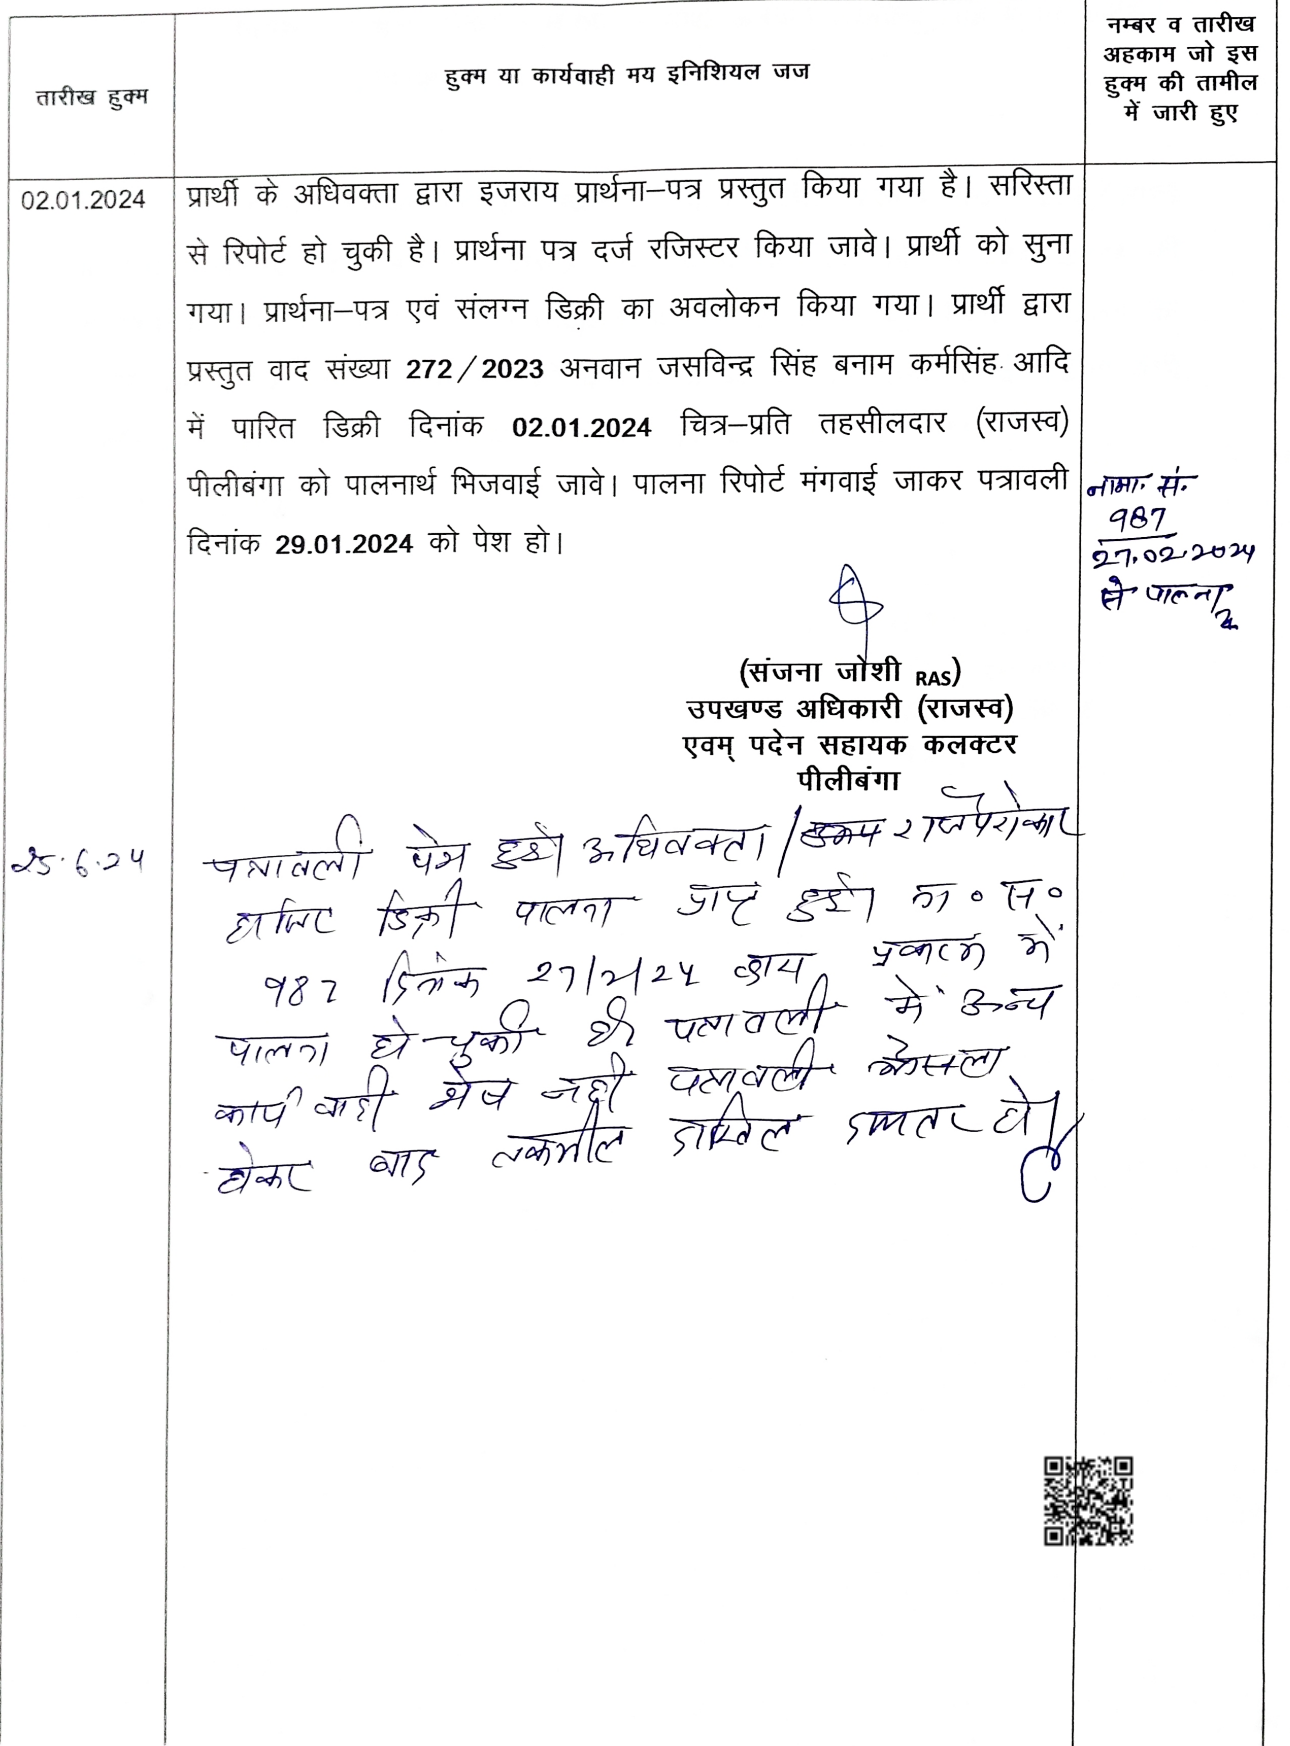 तारीख हुक्म
हुक्म या कार्यवाही मय इनिशियल जज
नम्बर व तारीख
अहकाम जो इस
हुक्म की तामील
में जारी हुए
02.01.2024
प्रार्थी के अधिवक्ता द्वारा इजराय प्रार्थना–पत्र प्रस्तुत किया गया है। सरिस्ता
से रिपोर्ट हो चुकी है। प्रार्थना पत्र दर्ज रजिस्टर किया जावे। प्रार्थी को सुना
गया। प्रार्थना–पत्र एवं संलग्न डिक्री का अवलोकन किया गया। प्रार्थी द्वारा
प्रस्तुत वाद संख्या 272/2023 अनवान जसविन्द्र सिंह बनाम कर्मसिंह आदि
में पारित डिक्री दिनांक 02.01.2024 चित्र–प्रति तहसीलदार (राजस्व)
पीलीबंगा को पालनार्थ भिजवाई जावे। पालना रिपोर्ट मंगवाई जाकर पत्रावली
दिनांक 29.01.2024 को पेश हो।
नामा. सं.
987
27.02.2024
से पालना
(संजना जोशी RAS)
उपखण्ड अधिकारी (राजस्व)
एवम् पदेन सहायक कलक्टर
पीलीबंगा
25.6.24
पत्रावली पेश हुई। अधिवक्ता / राजपैरोकार
हाजिर डिक्री पालना प्राप्त हुई। ना॰ स॰
987 दिनांक 27/2/24 द्वारा प्रकरण में
पालना हो चुकी है। पत्रावली में अन्य
कार्यवाही शेष नहीं पत्रावली फैसला
होकर बाद तकमील दाखिल दफ्तर हो।